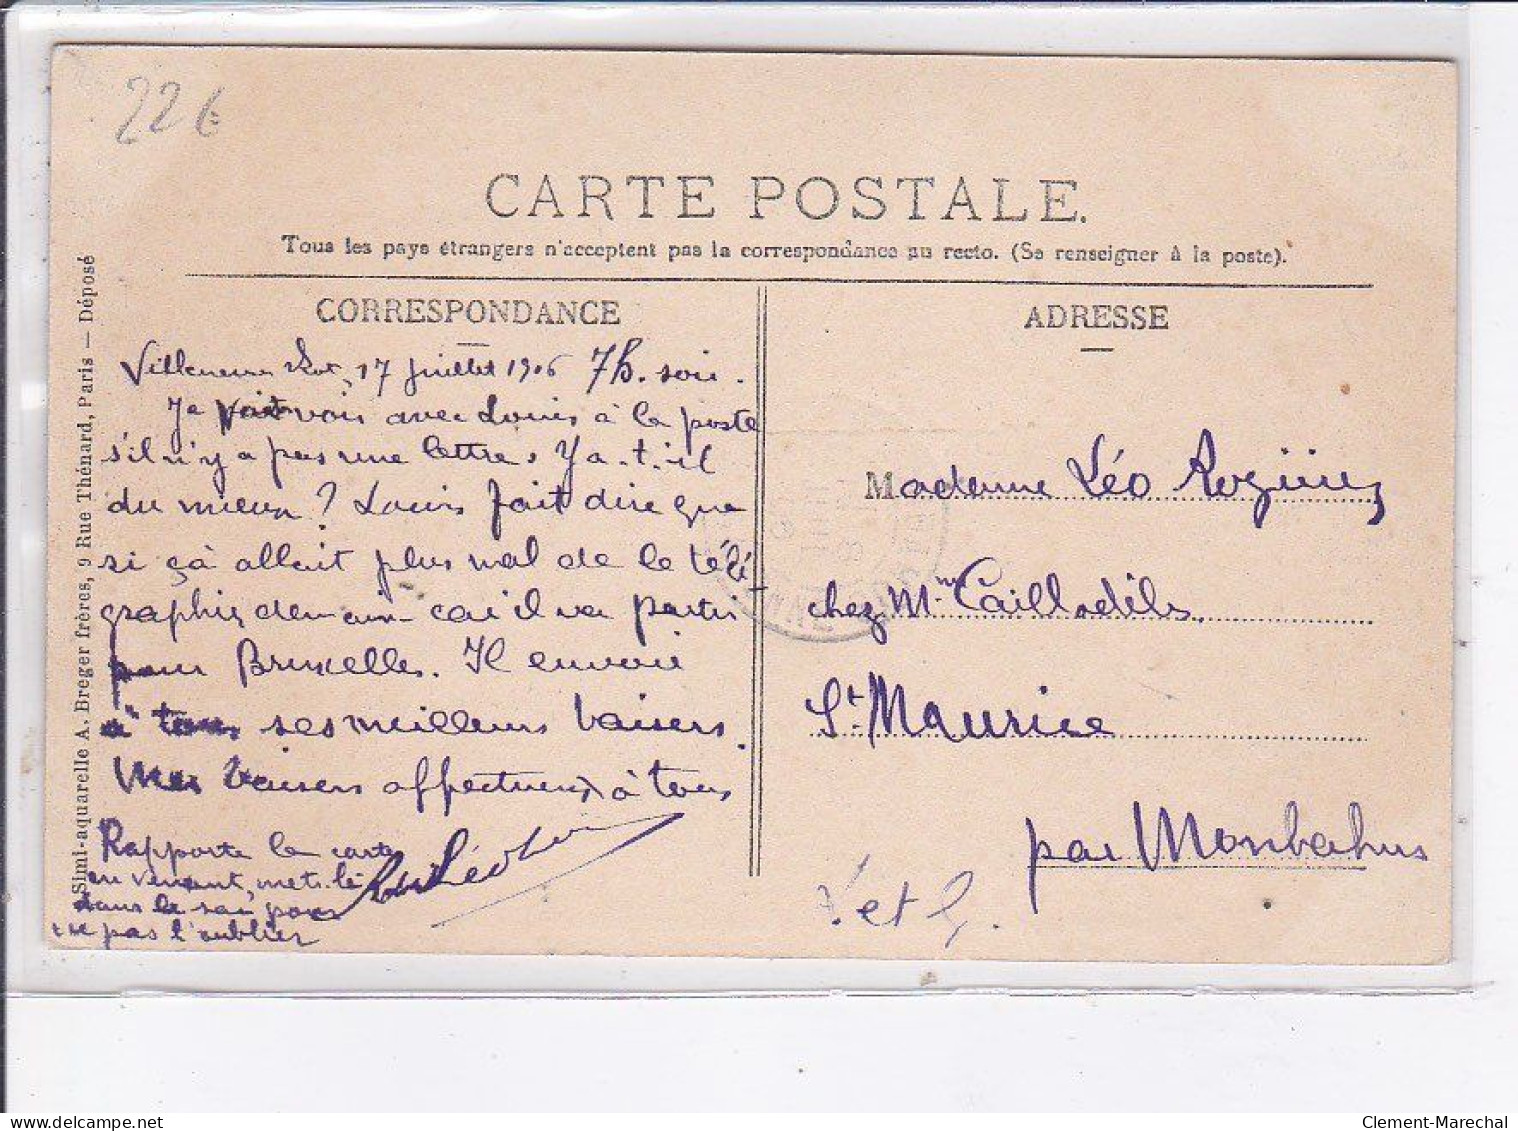 22€
CARTE POSTALE.
Tous les pays étrangers n'acceptent pas la correspondance au recto. (Se renseigner à la poste).
CORRESPONDANCE
Villeneuve s/Lot, 17 juillet 1906 7h. soir.
Je vais voir avec Louis à la poste
s'il n'y a pas une lettre. Y a-t-il
du mieux? Louis fait dire que
si ça allait plus mal de le télé-
graphier demain car il va partir
pour Bruxelles. Il envoie
à tous ses meilleurs baisers.
Mes baisers affectueux à tous
Rapporte la carte
en venant, mets-le
dans le sac pour
ne pas l'oublier
Léo
Simi-aquarelle A. Breger frères, 9 Rue Thénard, Paris — Déposé
ADRESSE
Madame Léo
chez Mme
St Maurice
par Monbahus
et G.
Clement-Marechal